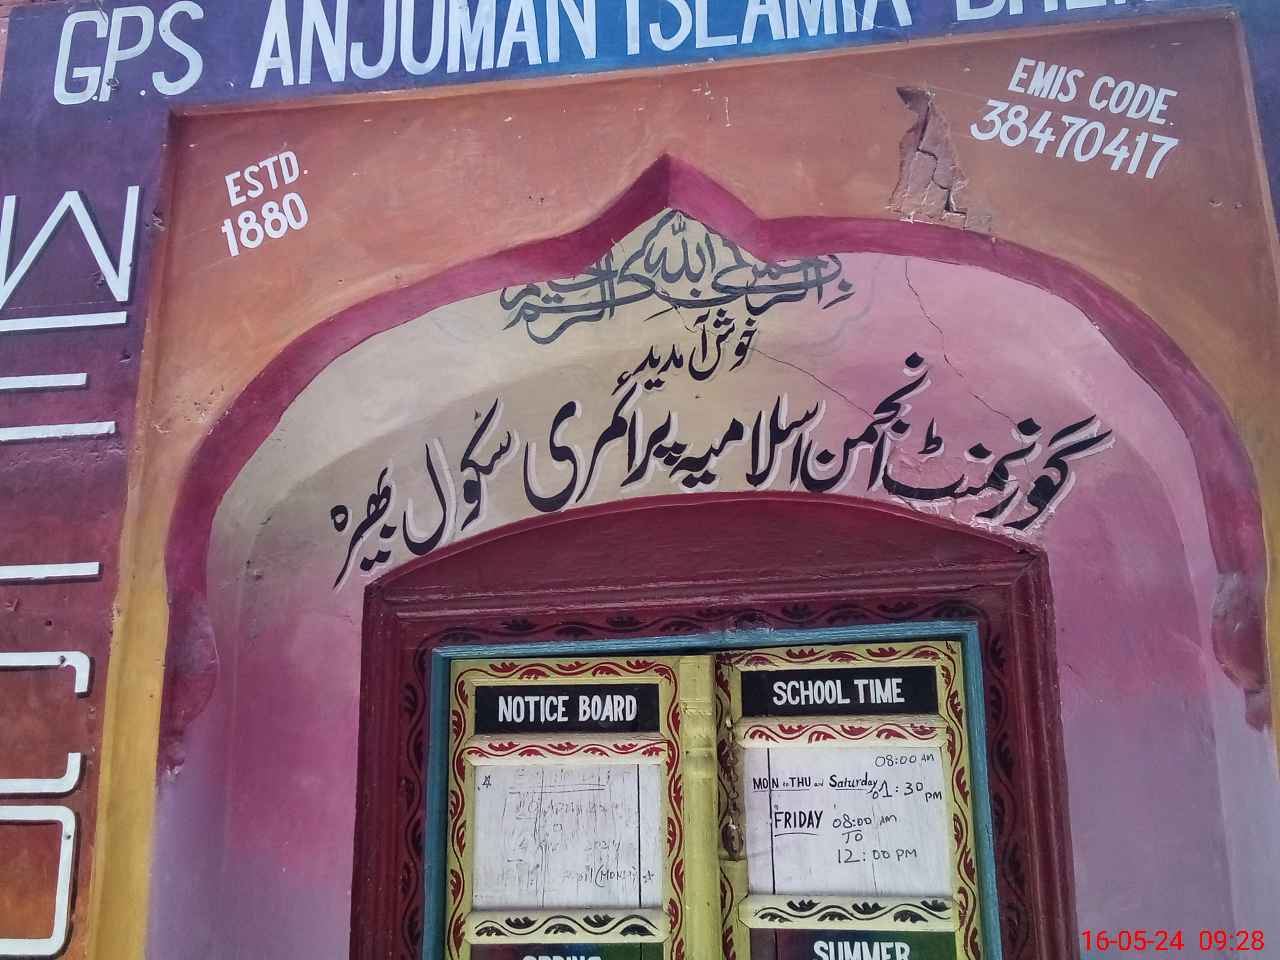 G.P.S ANJUMAN ISLAMIA
ESTD.
1880
EMIS CODE
38470417
WELCOME
بسم الله الرحمن الرحيم
خوش آمدید
گورنمنٹ انجمن اسلامیہ پرائمری سکول بھیرہ
NOTICE BOARD
SCHOOL TIME
08:00 AM
MON TO THU and Saturday 01:30 PM
FRIDAY 08:00 AM
TO
12:00 PM
SPRING
SUMMER
16-05-24 09:28